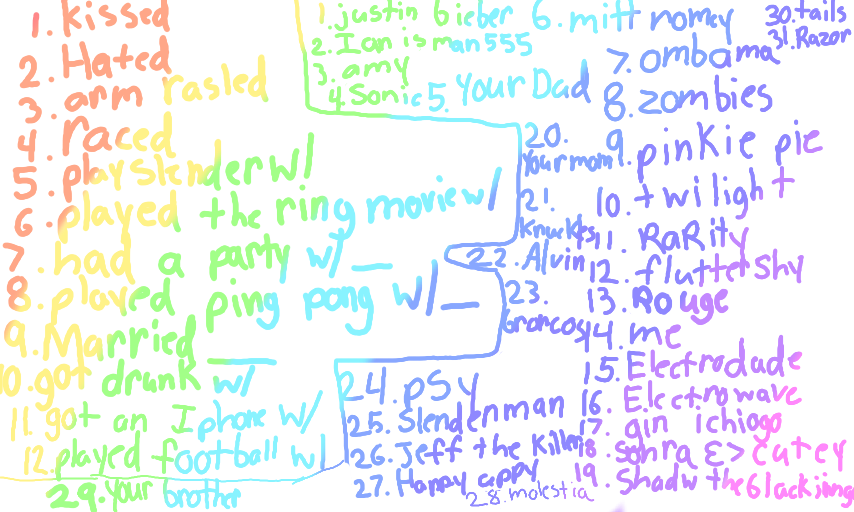 1. kissed
2. Hated
3. arm rasled
4. raced
5. play slender w/
6. played the ring movie w/
7. had a party w/ __
8. played ping pong w/ __
9. Married ____
10. got drunk w/
11. got an Iphone w/
12. played football w/
1. justin bieber
2. I an is man 555
3. amy
4. Sonic
5. Your Dad
6. mitt romey
7. ombama
8. zombies
9. pinkie pie
10. twilight
11. RaRity
12. fluttershy
13. Rouge
14. me
15. Electrodade
16. Electrowave
17. gin ichiogo
18. sonra &> catey
19. Shadw the blackjing
20. Your mom!
21. knuckles
22. Alvin
23. Gnorcos
24. psy
25. Slendenman
26. Jeff the killer
27. Happy appy
28. molestia
29. your brother
30. tails
31. Razor